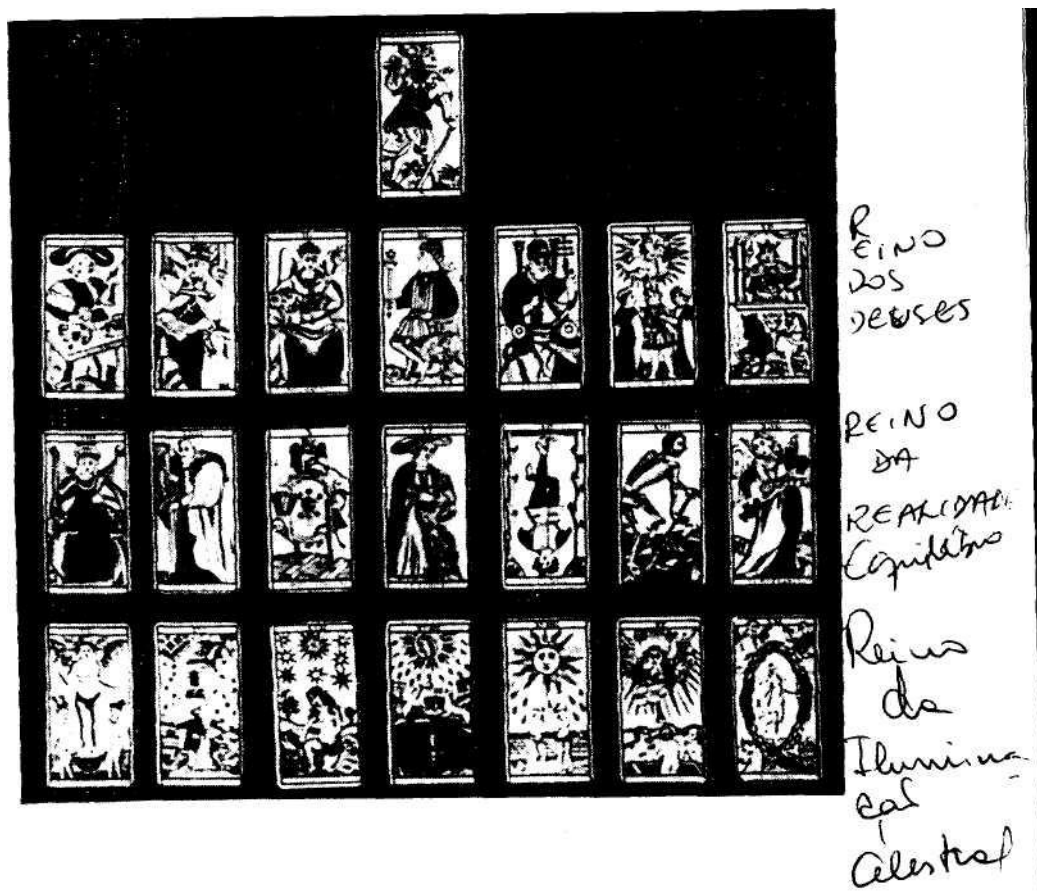 REINO
DOS
DEUSES
REINO
DA
REALIDADE
Equilíbrio
Reino
da
Ilumina
ção
Celestial